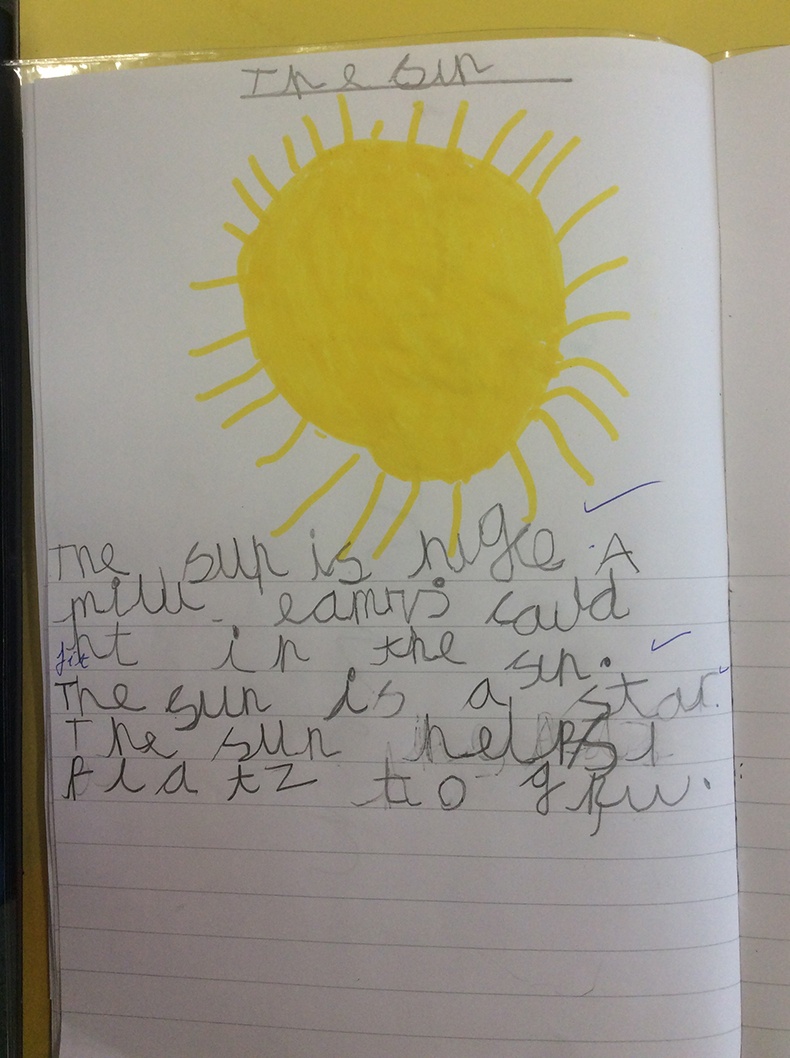 The Sun
The sun is hige. A
mill earths could
fit
fit in the sun.
The sun is a star.
The sun helps
platz to grow.